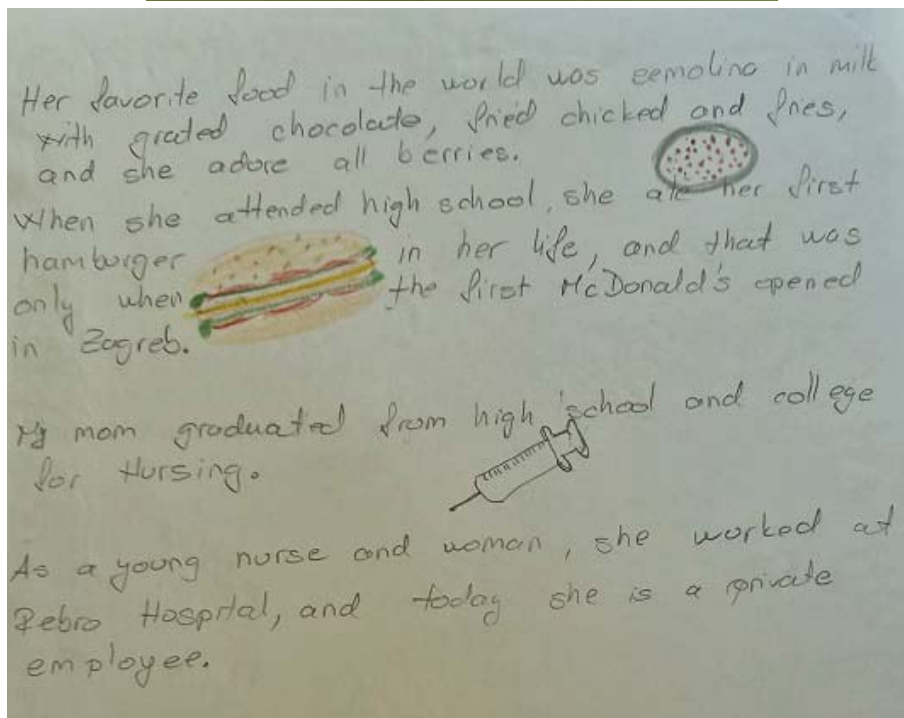 Her favorite food in the world was semolina in milk
with grated chocolate, fried chicked and fries,
and she adore all berries.
When she attended high school, she ate her first
hamburger in her life, and that was
only when the first McDonald's opened
in Zagreb.
My mom graduated from high school and college
for Nursing.
As a young nurse and woman, she worked at
Rebro Hospital, and today she is a private
employee.